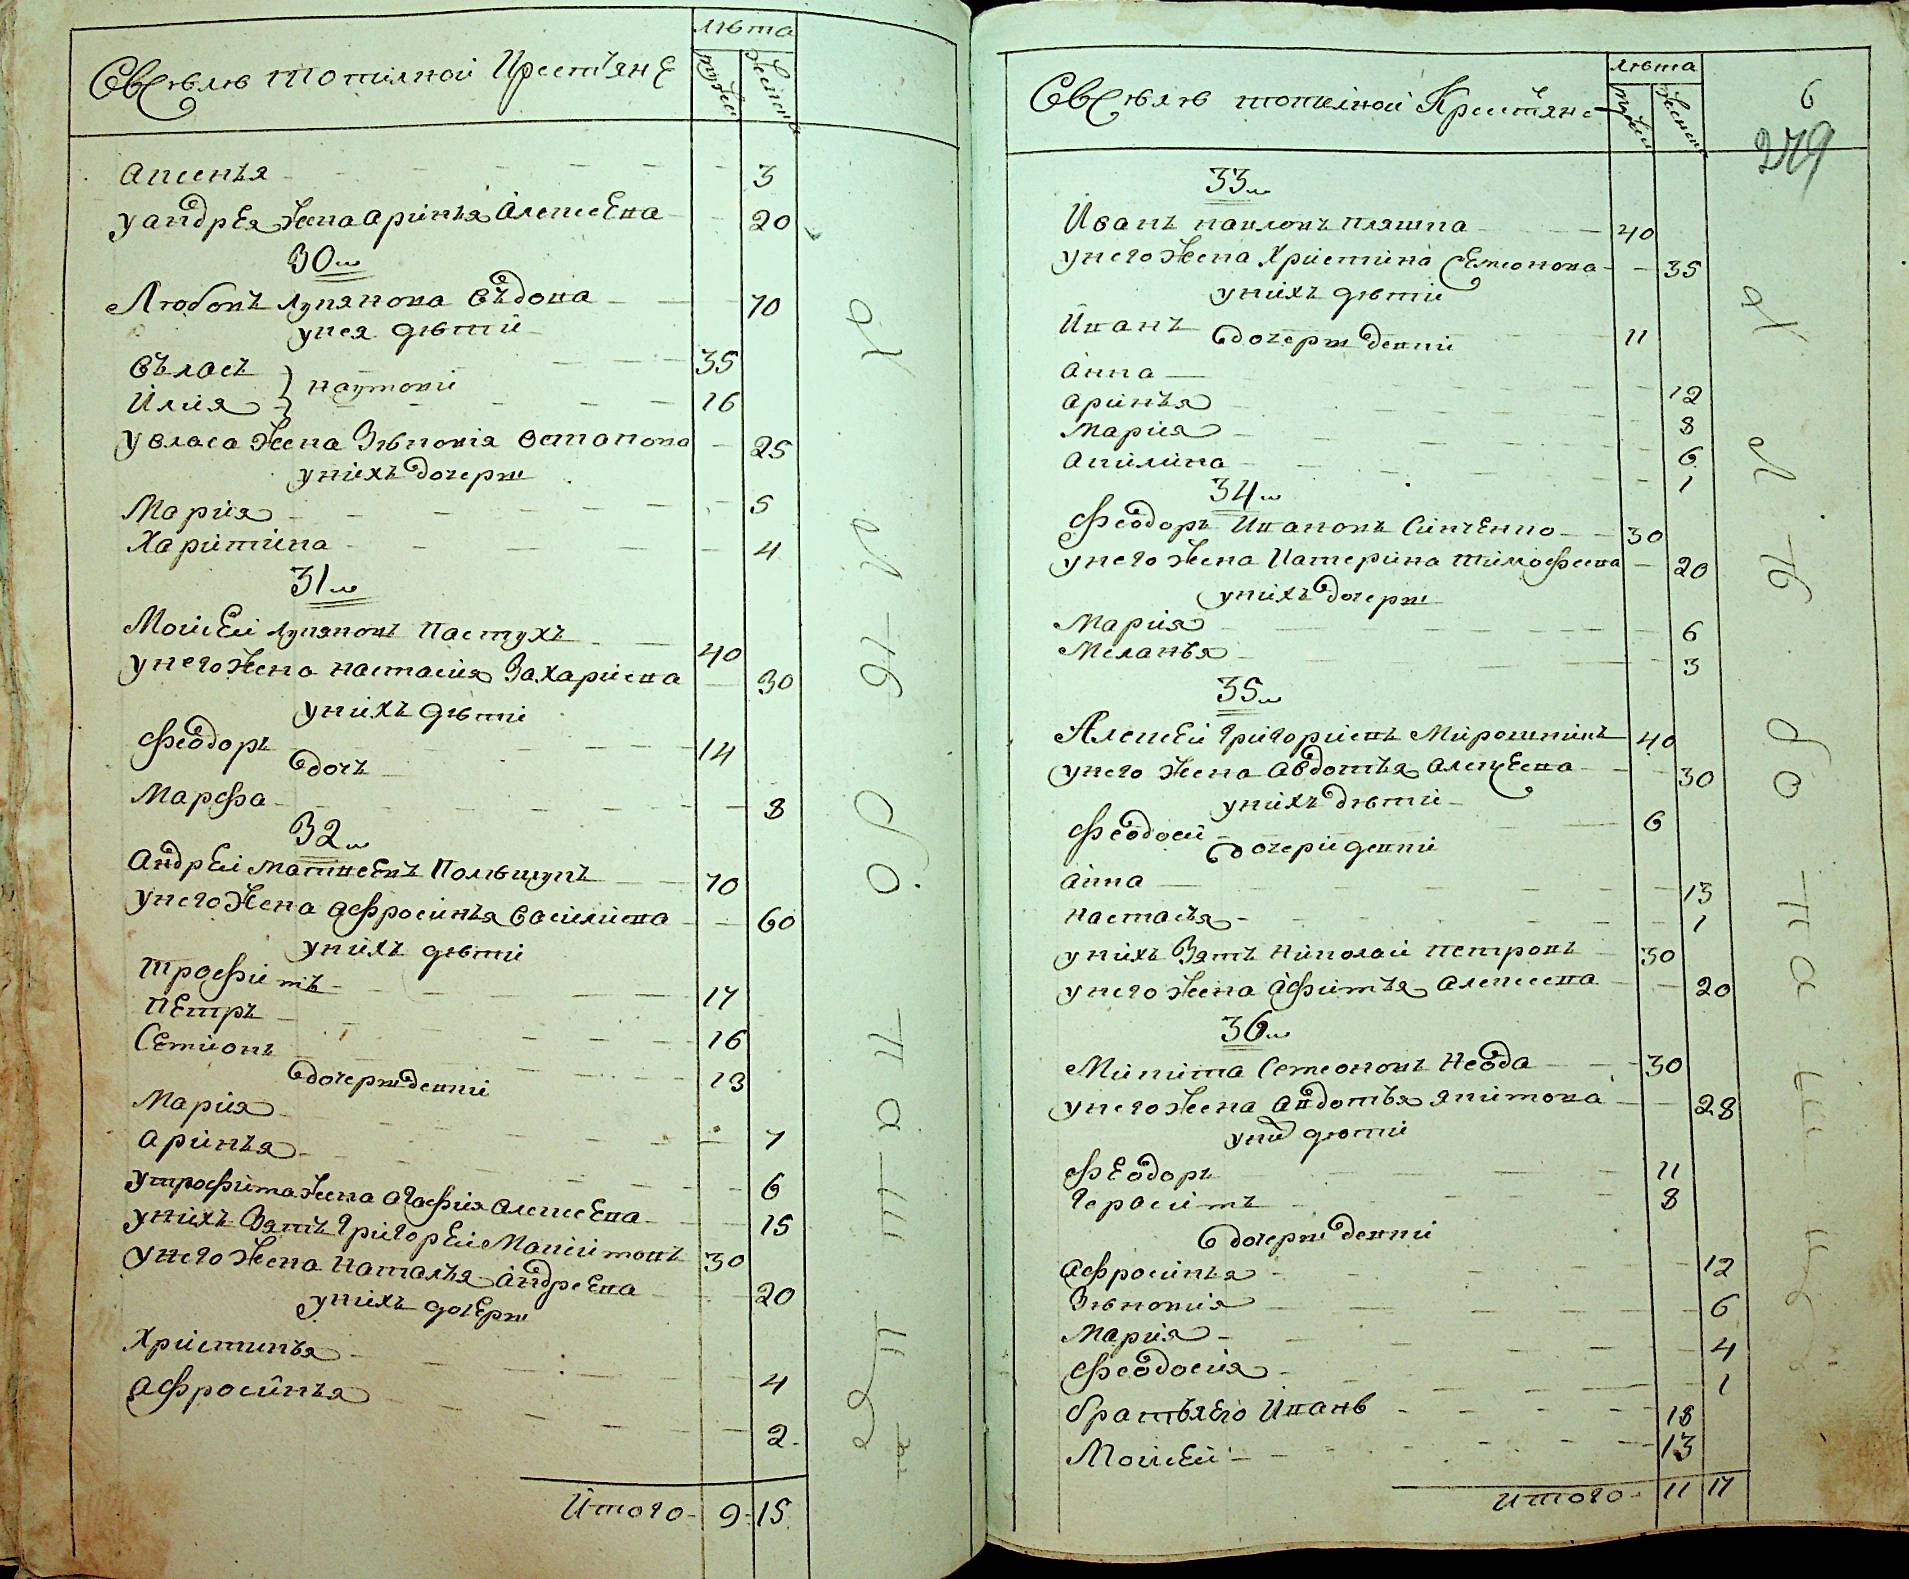 лѣта
Всѣлѣ топилной Крестьяне
мужес
женска
Аксенья 3
у Андрея жена Аринья Алексеева 20
30
Любовь Лукянова вдова 70
у нея дѣти
Власъ 35
Илия } Наумови 16
у Власа жена Зѣновия Остапова 25
у нихъ дочери
Мария 5
Харитина 4
31
Моисей Лукяновъ Пастухъ 40
у него жена Настасия Захариева 30
у нихъ дѣти
Феодоръ 14
дочь
Марфа 8
32
Андрей Матвеевъ 70
у него жена Афросинья Василиева 60
у нихъ дѣти
Трофимъ 17
Петръ 16
Семионъ 13
дочери девки
Мария 7
Аринья 6
у Трофима жена Агафия Алексеева 15
у нихъ Зять Григорей Макси мовъ 30
у него жена Наталья Андреева 20
у нихъ дочери
Христинья 4
Афросинья 2
Итого 9 15
лѣта
Всѣлѣ топилной Крестьяне
мужес
женска
6
279
33
Иванъ Павловъ Пляшка 40
у него жена Христина Семеонова 35
у нихъ дѣти
Иванъ 11
дочери девки
Анна 12
Аринья 8
Мария 6
Акилина 1
34
Феодоръ Ивановъ Синченко 30
у него жена Катерина Тимофеева 20
у нихъ дочери
Мария 6
Меланья 3
35
Алексей Григориевъ Мирошникъ 40
у него жена Авдотья Алексеева 30
у нихъ дѣти
Феодосей 6
дочери девки
Анна 13
Настасья 1
у нихъ Зять Николай Петровъ 30
у него жена Афимья Алексеева 20
36
Микита Семеоновъ Небда 30
у него жена Авдотья Якимова 28
у них дѣти
Феодоръ 11
Герасимъ 8
дочери девки
Афросинья 12
Зѣновия 6
Мария 4
Феодосия 1
братья его Иванъ 18
Моисей 13
Итого 11 17